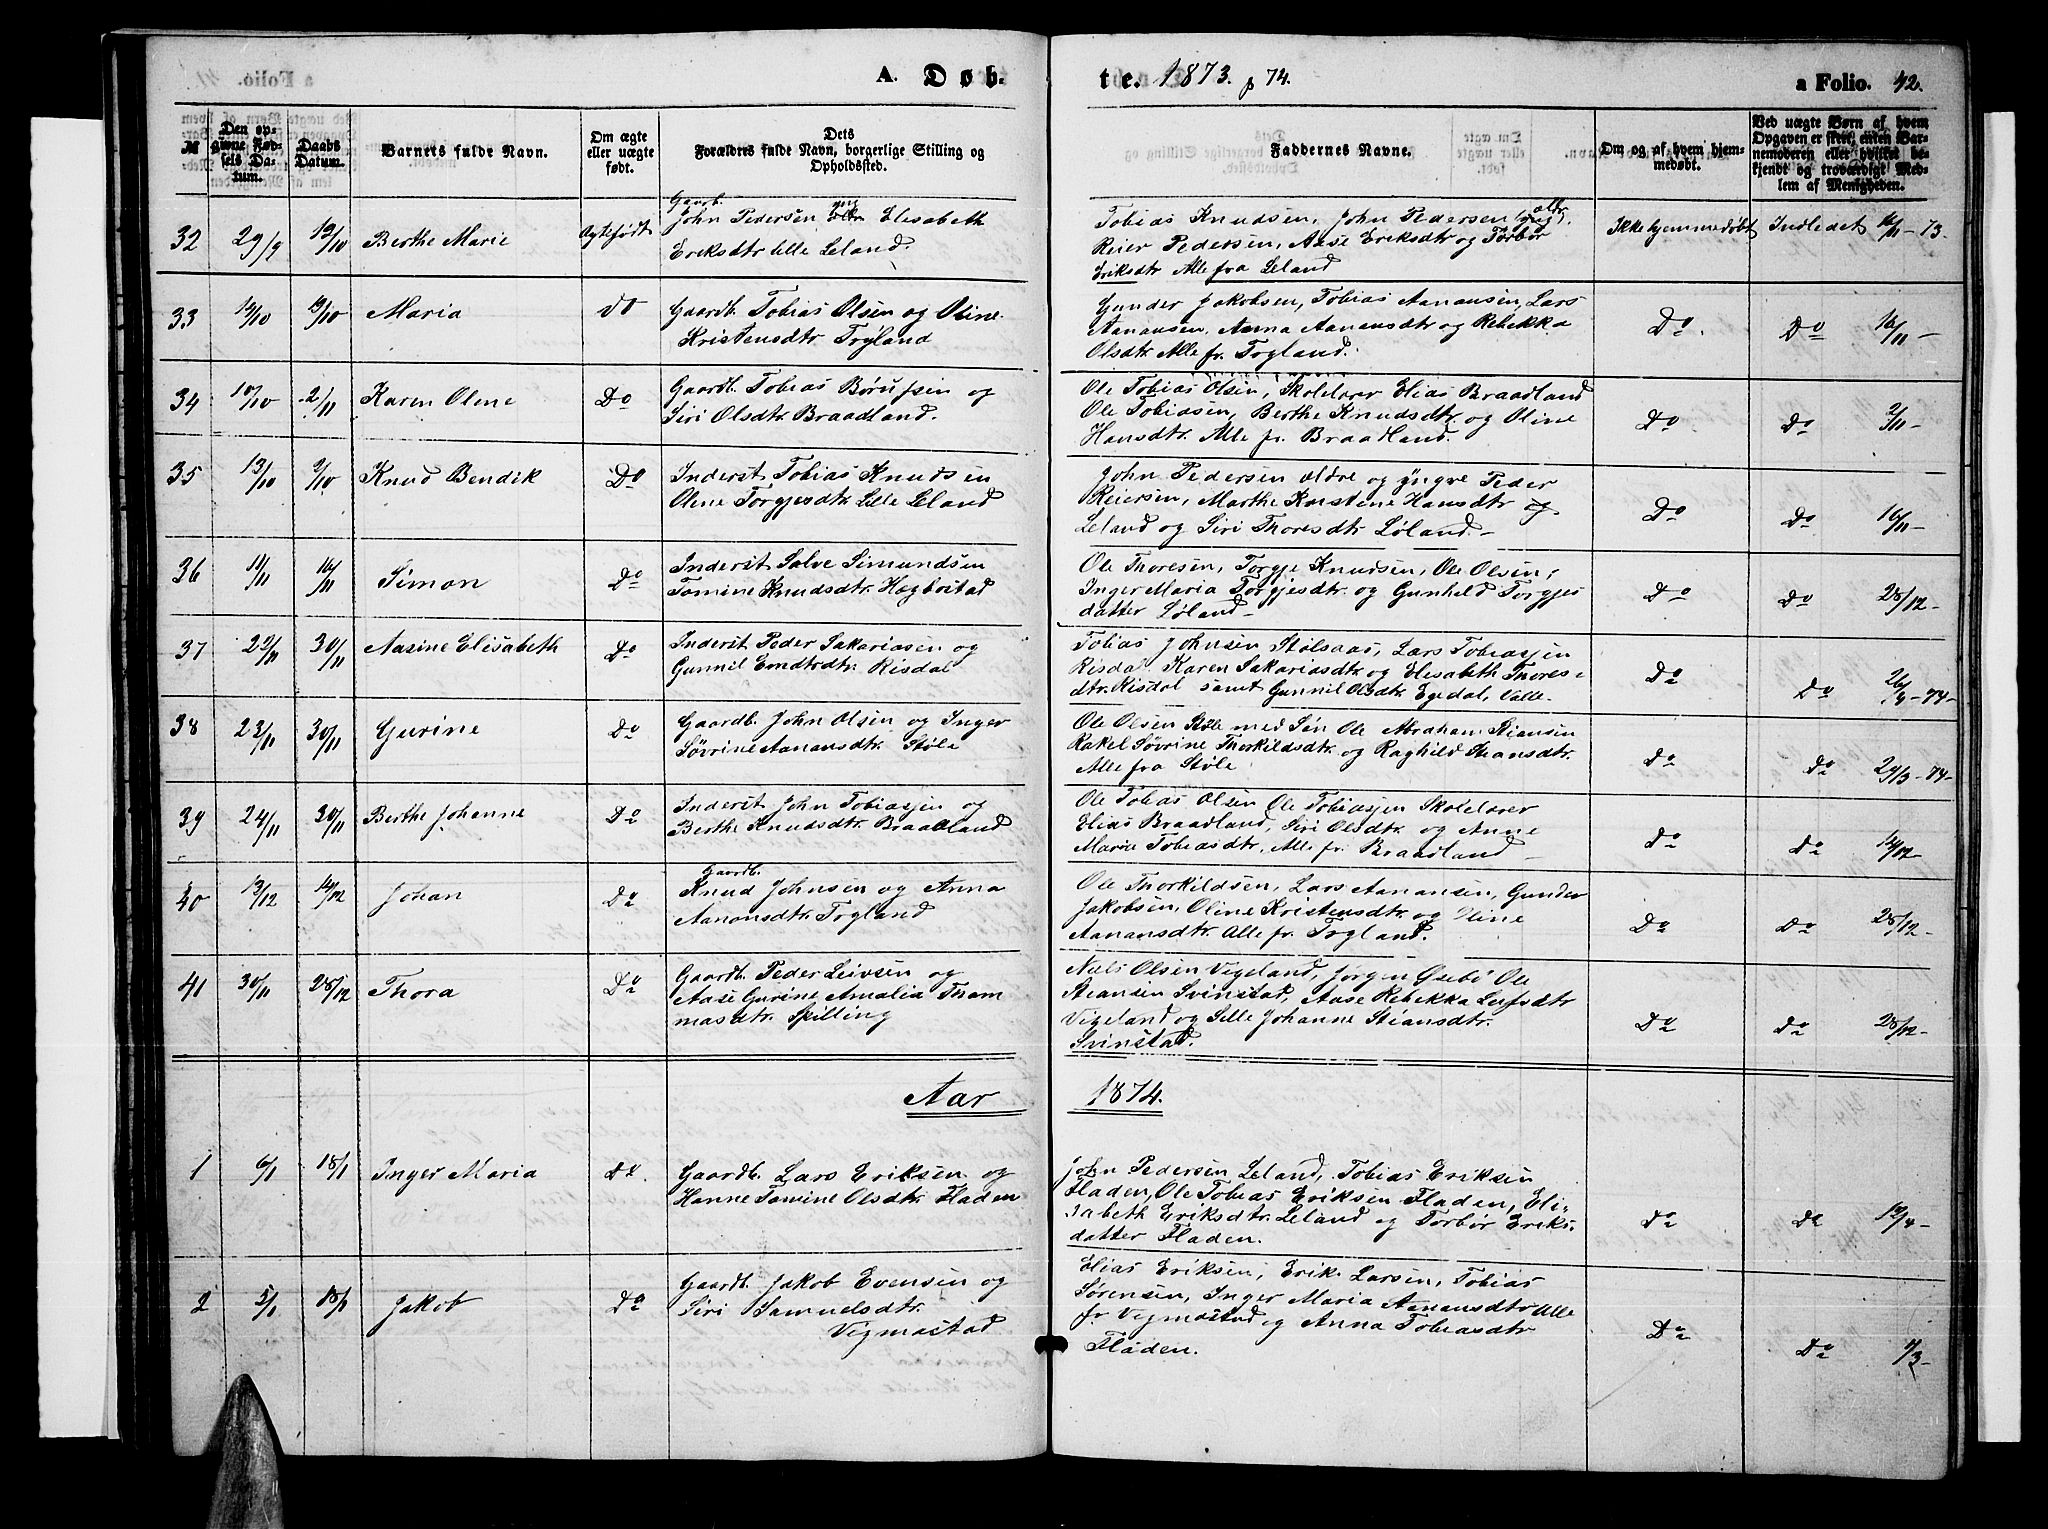 A. Døb-
te. 1873. & 74.
a Folio. 42.
№
Den op-
givne Fød-
sels Da-
tum.
Daabs
Datum.
Barnets fulde Navn.
Om ægte
eller uægte
født.
Dets
Forældres fulde Navn, borgerlige Stilling og
Opholdssted.
Faddernes Navne.
Om og af hvem hjem-
medøbt.
Ved uægte Børn af hvem
Opgaven er skeet, enten Bar-
nemoderen eller hvilket be-
kjendt og troværdigt Med-
lem af Menigheden.
32 29/9 19/10 Berthe Marie Ægtefødt
Gaardb.
John Pedersen yng Elisabeth
Eriksdtr Lille Leland.
Tobias Knudsen, John Pedersen (ældr.
Reier Pedersen, Aase Eriksdtr og Torbor
Eriksdtr Alle fra Leland
Ikke hjemmedøbt Indledet 16/11-73.
33 10/10 19/10 Maria do
Gaardb. Tobias Olsen og Oline
Kristensdtr Trygland
Gunder Jakobsen, Tobias Aanansen, Lars
Aanansen, Anna Aanansdtr og Rebekka
Olsdtr Alle fr. Trygland.
Do Do 16/11-
34 10/10 2/11 Karen Oline Do
Gaardb. Tobias Børufsen og
Siri Olsdtr Braadland.
Ole Tobias Olsen, Skolelærer Elias Braadland
Ole Tobiasen, Berthe Knudsdtr og Oline
Hansdtr. Alle fr. Braadland.
Do Do 2/11-
35 13/10 Knud Bendik Do
Inderst Tobias Knudsen
Olene Torgjesdtr. Lille Leland
John Pedersen ældre og yngre Peder
Reiersen, Marthe Kirstene Hansdtr og
Leland og Siri Thoresdtr Løland.-
Do Do 16/11-
36 11/11 16/11 Simon Do
Inderst Salve Simundsen
Tomine Knudsdtr. Hægbostad
Ole Thoresen, Torgje Knudsen, Ole Olsen,
Inger Maria Torgjesdtr. og Gunhild Torgjes
datter Løland-
Do Do 28/12-
37 22/11 30/11 Aasine Elisabeth Do
Inderst Peder Sakariasen og
Gunnil Risdal
Tobias Johnsen Stølsaas, Lars Tobiassen
Risdal Karen Sakariasdtr og Elisabeth Thores-
dtr. Risdal samt Gunnil Olsdtr. Egedal, Valle-
Do Do 26/4-74-
38 23/11 30/11 Gurine Do
Gaardb. John Olsen og Inger
Sørine Aanansdtr. Støle
Ole Olsen Støle med Søn Ole Abraham Stiansen
Rakel Sørine Thorkildsdtr. og Raghild Steansdtr.
Alle fra Støle
Do Do 29/3-74-
39 24/11 30/11 Berthe Johanne Do
Inderst John Tobiassen og
Berthe Knudsdtr. Braadland
Ole Tobias Olsen Ole Tobiassen Skolelærer
Elias Braadland, Siri Olsdtr. og Anne
Marie Tobiasdtr, Alle fr. Braadland-
Do Do 14/12-
40 13/12 14/12 Johan Do
Gaardb.
Knud Johnsen og Anna
Aanansdtr. Trygland
Ole Thorkildsen, Lars Aanansen, Gunder
Jakobsen, Oline Kristensdtr. og Oline
Aanansdtr. Alle fr. Trygland.
Do Do 28/12-
41 30/11 28/12 Thora Do
Gaardb. Peder Leivsen og
Aase Gurine Amalia Thom
masdtr. Spilling
Niels Olsen Vigeland, Jørgen Øsebø Ole
Steansen Svinstad, Aase Rebekka Leifsdtr
Vigeland og Sille Johanne Stiansdtr.
Svinstad.
Do Do 28/12-
Aar 1874.
1 6/1 18/1 Inger Maria Do.
Gaardb. Lars Eriksen og
Hanne Tomine Olsdtr. Fladen
John Pedersen Leland, Tobias Eriksen
Fladen, Ole Tobias Eriksen Fladen, Eli-
sabeth Eriksdtr. Leland og Torbør Eriks-
datter Fladen.
Do Do 12/4-
2 5/1 18/1 Jakob Do
Gaardb. Jakob Evensen og
Siri Samuelsdtr.
Vigmostad
Elias Eriksen, Erik Larsen, Tobias
Sørensen, Inger Maria Aanansdtr Alle
fr Vigmostad og Anna Tobiasdtr
Fladen.
Do Do